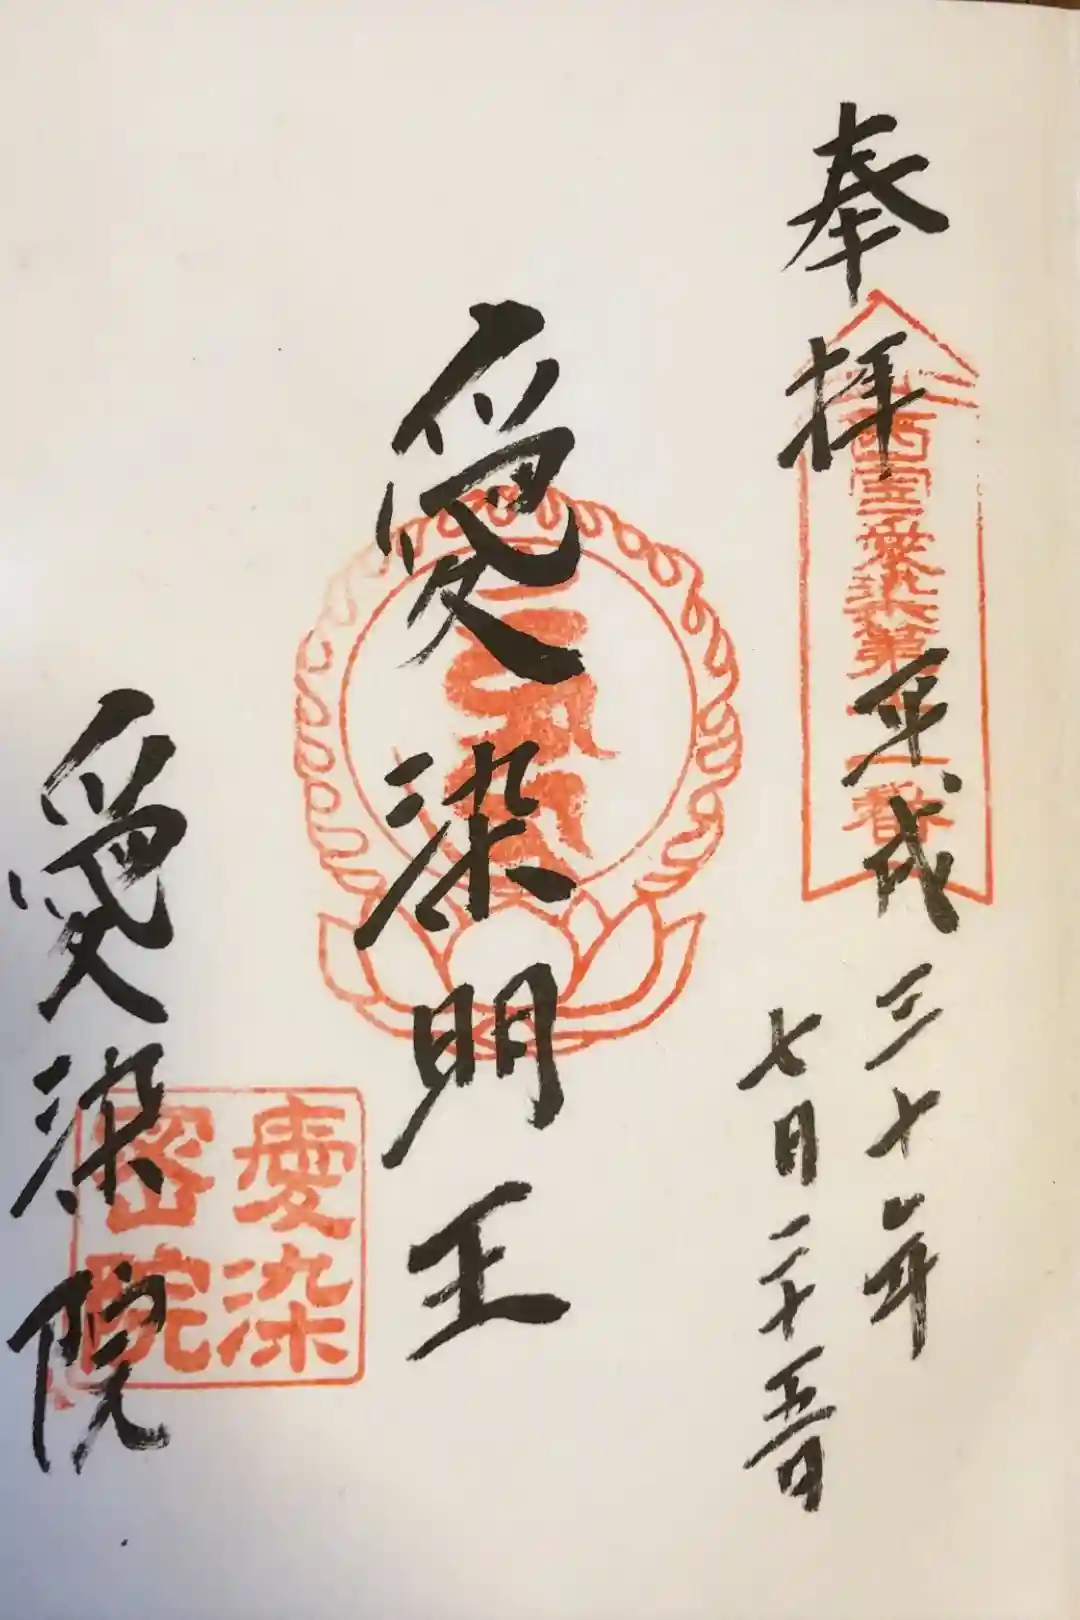 奉拝
西国愛染第十一番
平成三十年
七月二十五日
愛染明王
愛染院
愛染
密院